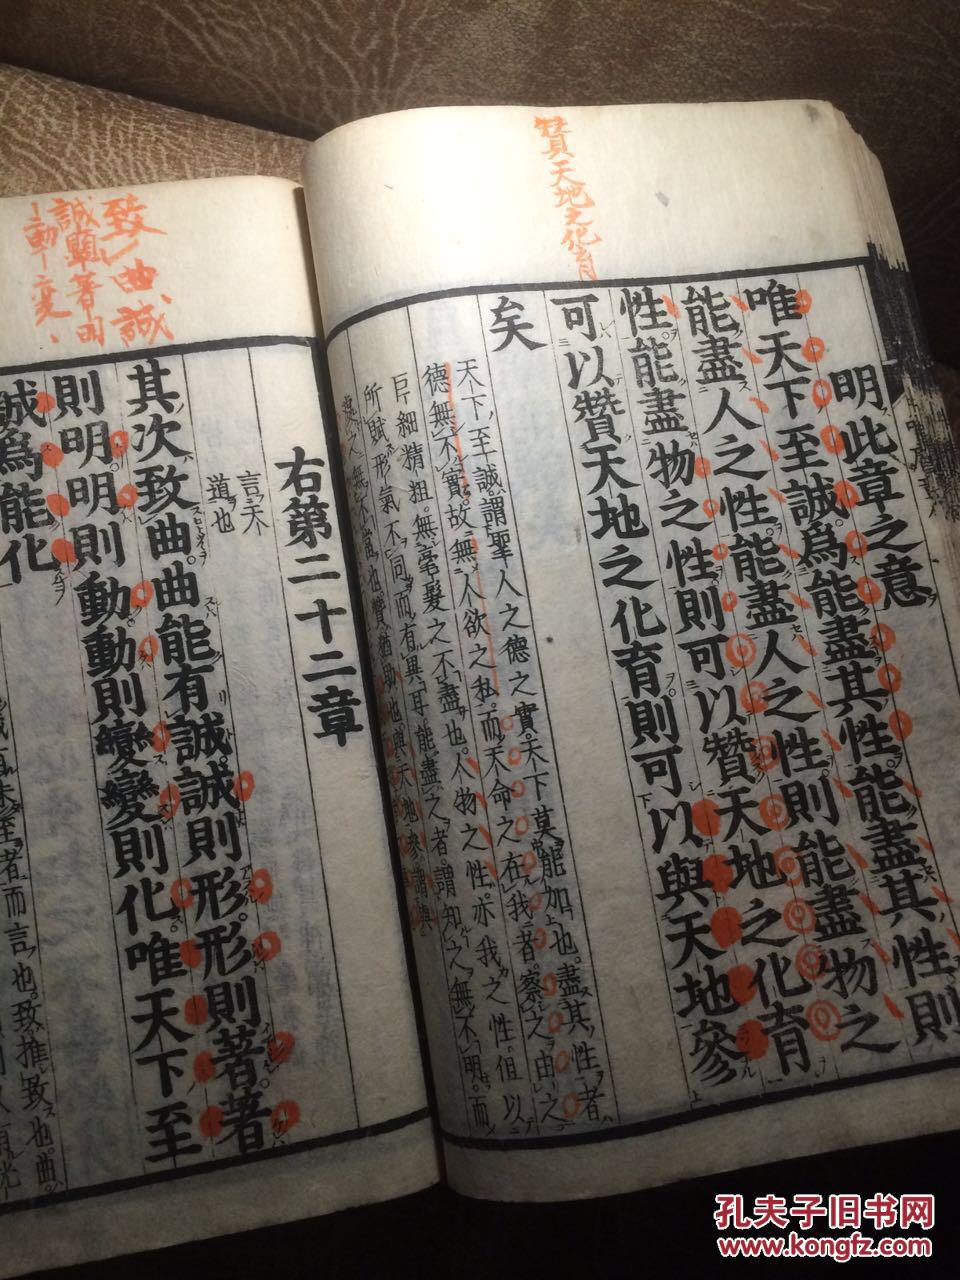 贊天地之化育
明此章之意
唯天下至誠爲能盡其性能盡其性則
能盡人之性能盡人之性則能盡物之
性能盡物之性則可以贊天地之化育
可以贊天地之化育則可以與天地參
矣
天下至誠謂聖人之德之實天下莫能加也盡其性者
德無不實故無人欲之私而天命之在我者察之由之
巨細精粗無毫髮之不盡也人物之性亦我之性但以
所賦形氣不同而有異耳能盡之者謂知之無不明而
處之無不當也贊猶助也與天地參謂與
右第二十二章
言天
道也
致ノ曲誠
誠顯著明
動 變
其次致曲曲能有誠誠則形形則著著
則明明則動動則變變則化唯天下至
誠爲能化
至者而言也致推致也曲